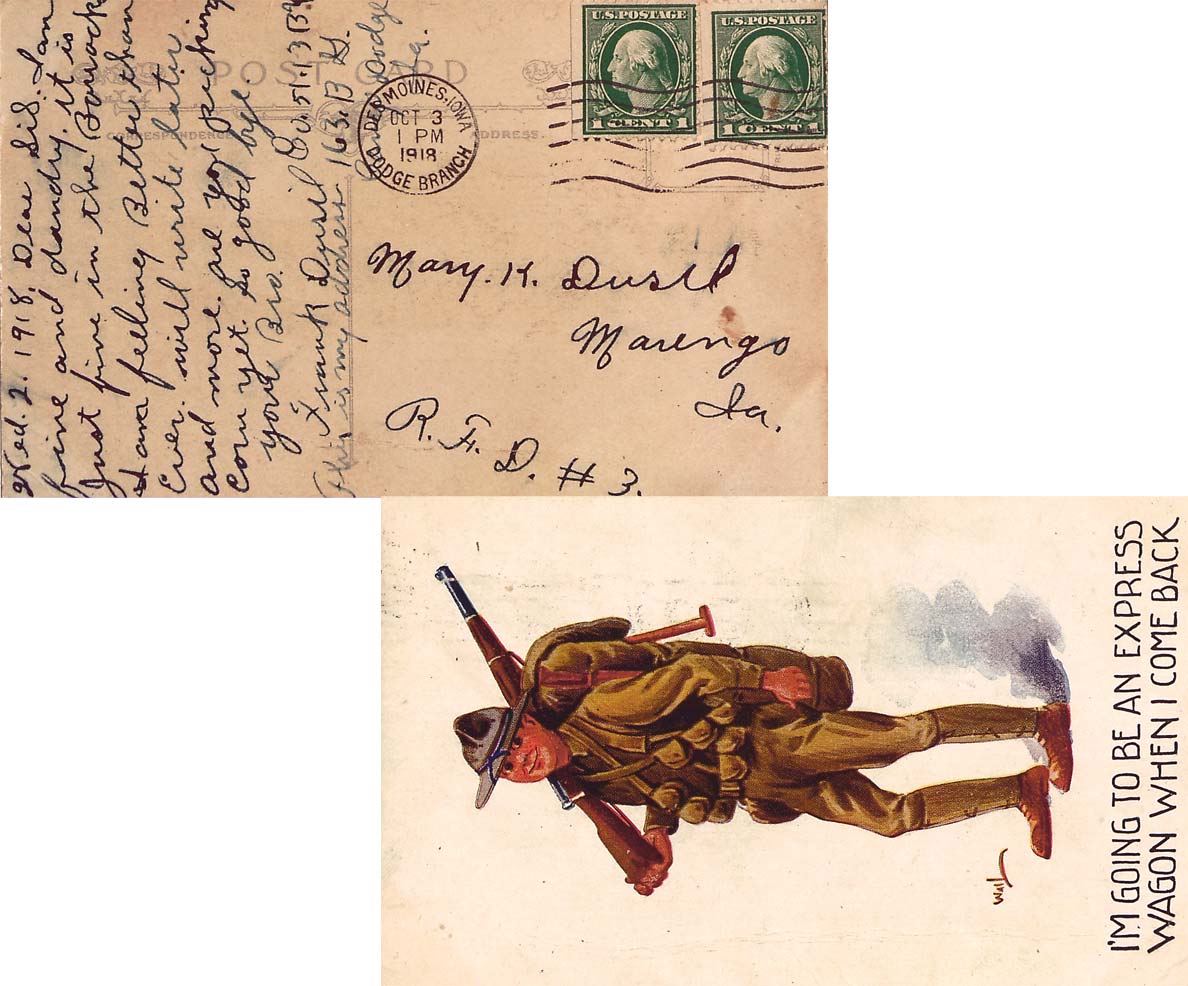 POST CARD
CORRESPONDENCE
ADDRESS.
U.S. POSTAGE
1 CENT 1
U.S. POSTAGE
1 CENT 1
DES MOINES, IOWA
OCT 3
1 PM
1918
DODGE BRANCH
Wed. 2. 1918. Dear Sis. I am
fine and dandry. it is
Just fine in the Barrack
I am feeling Better than
Ever. will write later
and more. are you picking
corn yet. So good bye
your Bro.
Frank Dusil Co. 51-13 Bn
This is my address 163. B G.
Dodge
Ia.
Mary. K. Dusil
Marengo
Ia.
R. F. D. # 3.
I'M GOING TO BE AN EXPRESS
WAGON WHEN I COME BACK
Wall